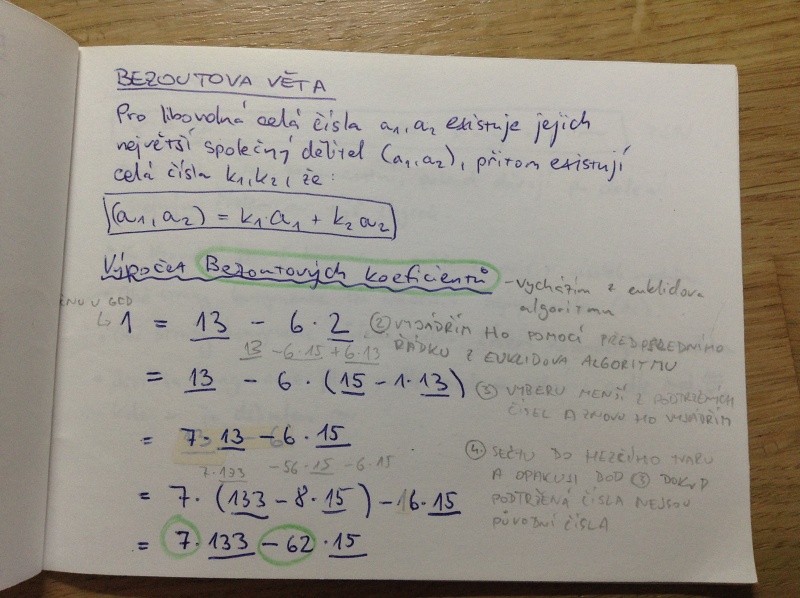 BEZOUTOVA VĚTA
Pro libovolná celá čísla a₁, a₂ existuje jejich
největší společný dělitel (a₁,a₂), přitom existují
celá čísla k₁,k₂, že:
(a₁,a₂) = k₁·a₁ + k₂a₂
Výpočet Bezoutových koeficientů - vycházím z euklidova
algoritmu
GCD
1 = 13 - 6·2 ② VYJÁDŘÍM HO POMOCÍ PŘEDPOSLEDNÍHO
ŘÁDKU Z EUKLIDOVA ALGORITMU
13 - 6·15 + 6·13
= 13 - 6·(15 - 1·13) ③ VYBERU MENŠÍ Z PODTRŽENÝCH
ČÍSEL A ZNOVU HO VYJÁDŘÍM
= 7·13 - 6·15
7·133 - 56·15 - 6·15
④ SEČTU DO HEZČÍHO TVARU
A OPAKUJI BOD ③ DOKUD
= 7·(133 - 8·15) - 6·15 PODTRŽENÁ ČÍSLA NEJSOU
PŮVODNÍ ČÍSLA
= 7·133 - 62·15